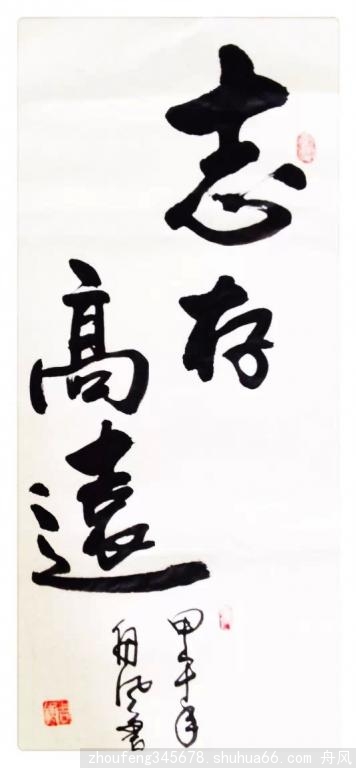 志存
高遠
甲午年
舟风書
zhoufeng345678.shuhua66.com 舟风